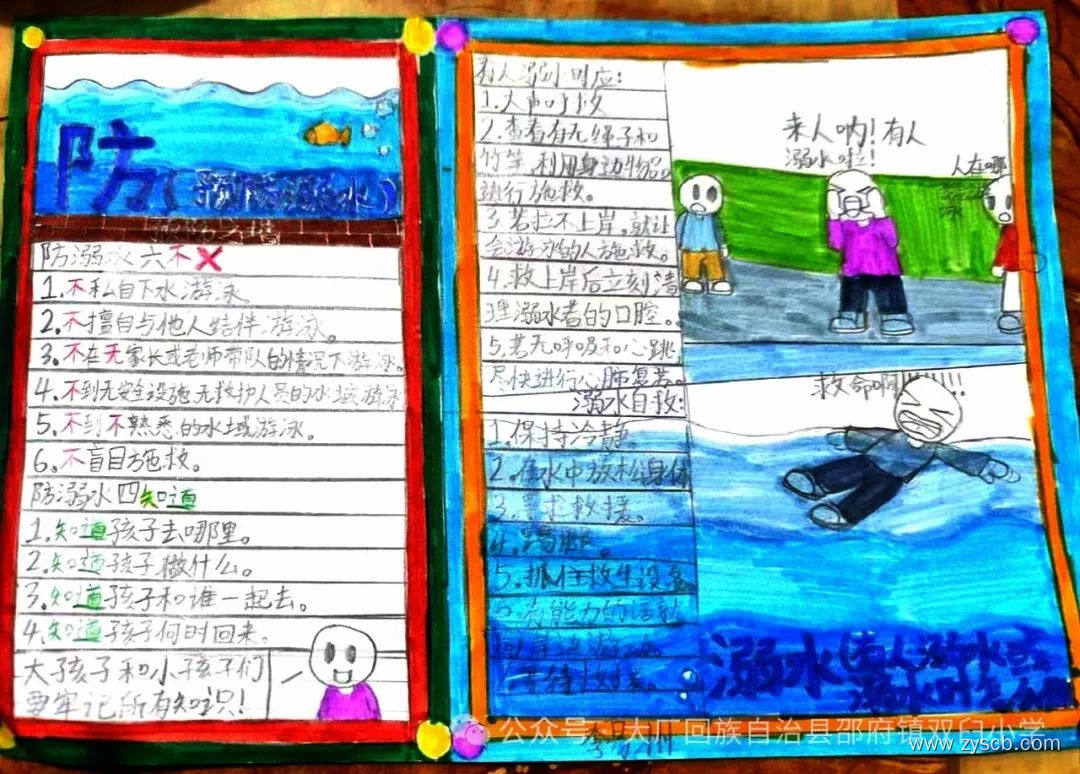 防(预防溺水)
防溺水六不
1.不私自下水游泳
2.不擅自与他人结伴游泳。
3.不在无家长或老师带队的情况下游泳。
4.不到无安全设施无救护人员的水域游泳
5.不到不熟悉的水域游泳。
6.不盲目施救。
防溺水四知道
1.知道孩子去哪里。
2.知道孩子做什么。
3.知道孩子和谁一起去。
4.知道孩子何时回来。
大孩子和小孩子们
要牢记所有知识!
有人溺水时应:
1.大声呼救
2.查看有无绳子和
竹竿,利用身边物品
进行施救。
3.若拉不上岸,就让
会游泳的人施救。
4.救上岸后立刻清
理溺水者的口腔。
5.若无呼吸和心跳
尽快进行心肺复苏。
溺水自救:
1.保持冷静。
2.在水中放松身体
3.寻求救援。
4.踢脚。
5.抓住救生设备
来人呐!有人
溺水啦!
人在哪
救命啊!!!!!!!
溺水(有人溺水或
公众号 大厂回族自治县邵府镇双臼小学
www.zyscb.com